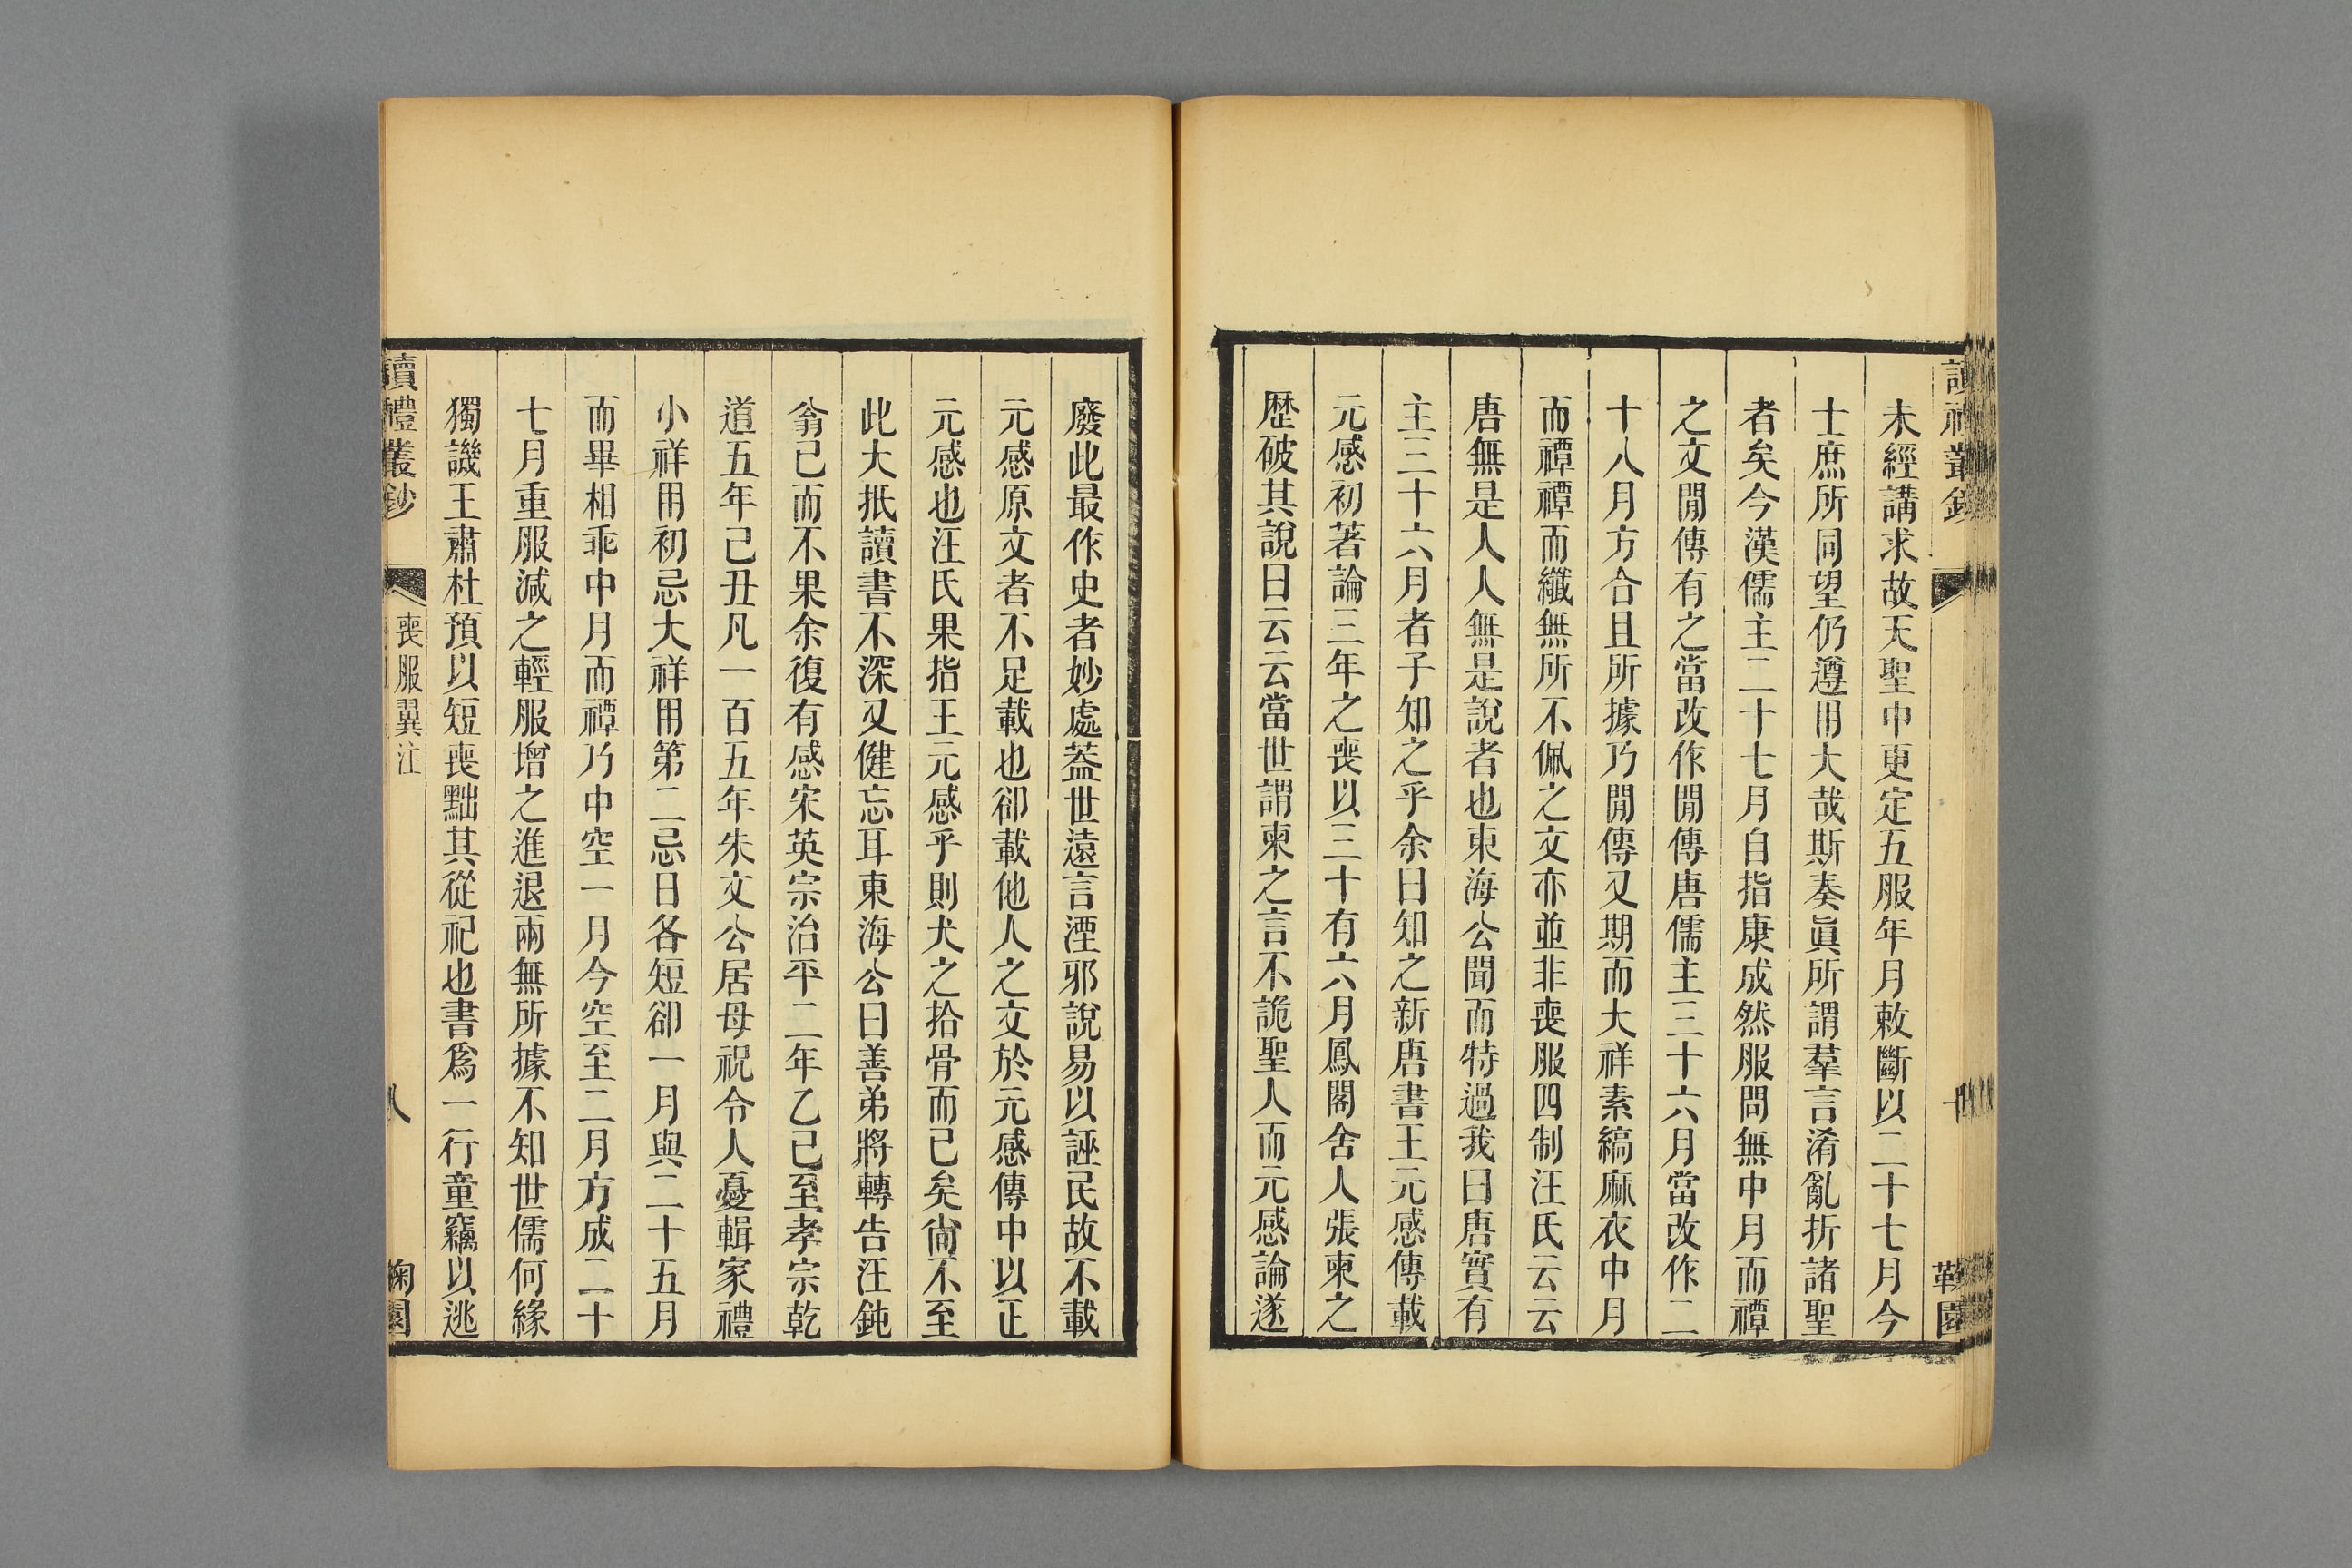 未經講求故天聖中更定五服年月敕斷以二十七月今
士庶所同望仍遵用大哉斯奏眞所謂羣言淆亂折諸聖
者矣今漢儒主二十七月自指康成然服問無中月而禫
之文閒傳有之當改作閒傳唐儒主三十六月當改作二
十八月方合且所據乃閒傳又期而大祥素縞麻衣中月
而禫禫而纖無所不佩之文亦並非喪服四制汪氏云云
唐無是人人無是說者也東海公聞而特過我曰唐實有
主三十六月者子知之乎余曰知之新唐書王元感傳載
元感初著論三年之喪以三十有六月鳳閣舍人張柬之
歷破其說曰云云當世謂柬之言不詭聖人而元感論遂
廢此最作史者妙處葢世遠言湮邪說易以誣民故不載
元感原文者不足載也卻載他人之文於元感傳中以正
元感也汪氏果指王元感乎則犬之拾骨而已矣尙不至
此大抵讀書不深又健忘耳東海公曰善弟將轉告汪鈍
翁已而不果余復有感宋英宗治平二年乙巳至孝宗乾
道五年己丑凡一百五年朱文公居母祝令人憂輯家禮
小祥用初忌大祥用第二忌日各短卻一月與二十五月
而畢相乖中月而禫乃中空一月今空至二月方成二十
七月重服減之輕服增之進退兩無所據不知世儒何緣
獨譏王肅杜預以短喪黜其從祀也書爲一行童竊以逃
讀禮叢鈔
喪服翼注
八
鞠園